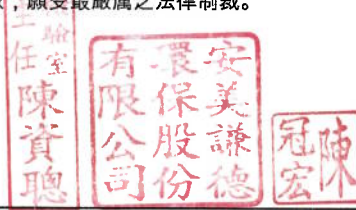 ，願受最嚴厲之法律制裁。
驗室
主任 陳資聰
安美謙德
環保股份
有限公司
陳
冠宏